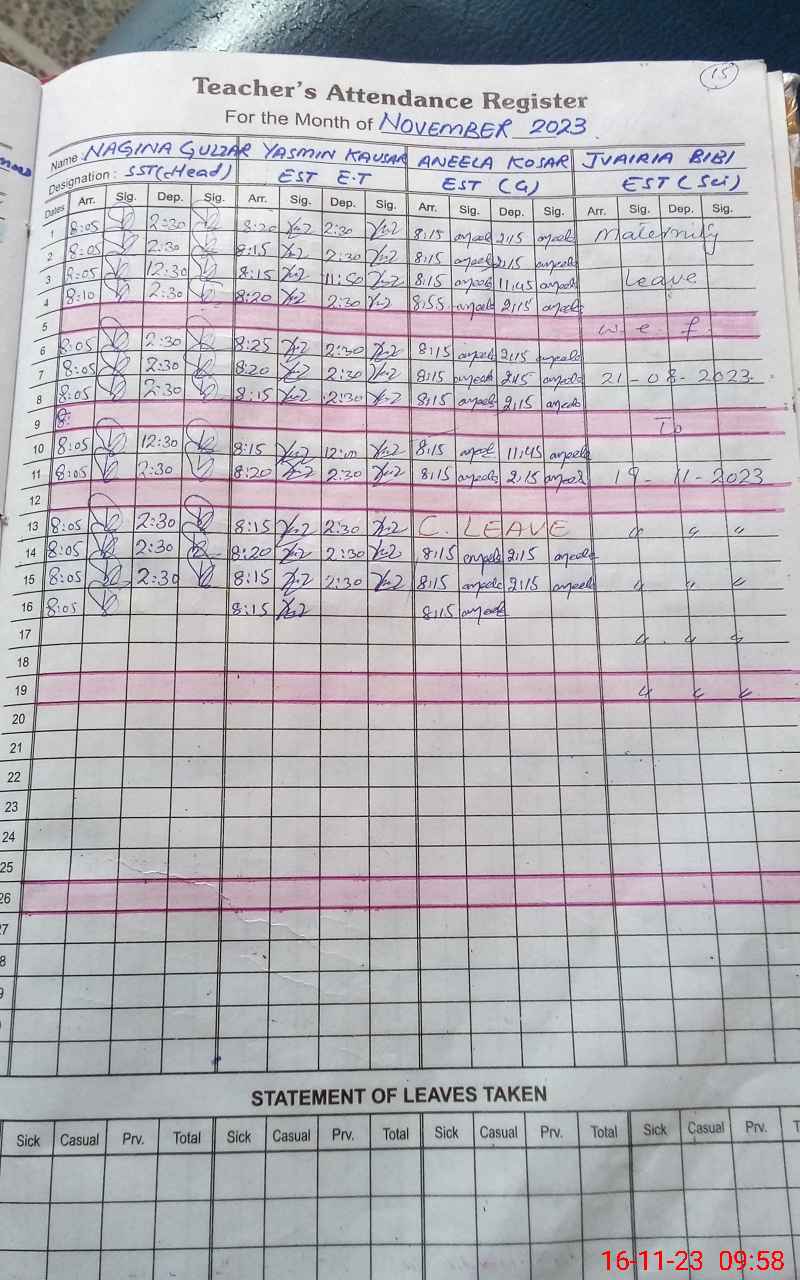 15
Teacher's Attendance Register
For the Month of NOVEMBER 2023.
Name NAGINA GULZAR YASMIN KAUSAR ANEELA KOSAR JVAIRIA BIBI
Designation : SST(Head) EST E.T EST (G) EST (Sci)
Dates Arr. Sig. Dep. Sig. Arr. Sig. Dep. Sig. Arr. Sig. Dep. Sig. Arr. Sig. Dep. Sig.
1 8:05 2:30 8:20 2:30 8:15 2:15 Maternity
2 8:05 2:30 8:15 2:30 8:15 2:15
3 8:05 12:30 8:15 11:50 8:15 11:45 Leave
4 8:10 2:30 8:20 2:30 8:55 2:15
5 w.e.f.
6 8:05 2:30 8:25 2:30 8:15 2:15
7 8:05 2:30 8:20 2:30 8:15 2:15 21-08-2023.
8 8:05 2:30 8:15 2:30 8:15 2:15
9 8: To
10 8:05 12:30 8:15 8:15 11:45
11 8:05 2:30 8:20 2:30 8:15 2:15 19-11-2023
12
13 8:05 2:30 8:15 2:30 C. LEAVE " " "
14 8:05 2:30 8:20 2:30 8:15 2:15
15 8:05 2:30 8:15 2:30 8:15 2:15 " " "
16 8:05 8:15 8:15
17 " " "
18
19 " " "
20
21
22
23
24
25
26
7
8
9
STATEMENT OF LEAVES TAKEN
Sick Casual Prv. Total Sick Casual Prv. Total Sick Casual Prv. Total Sick Casual Prv. T
16-11-23 09:58